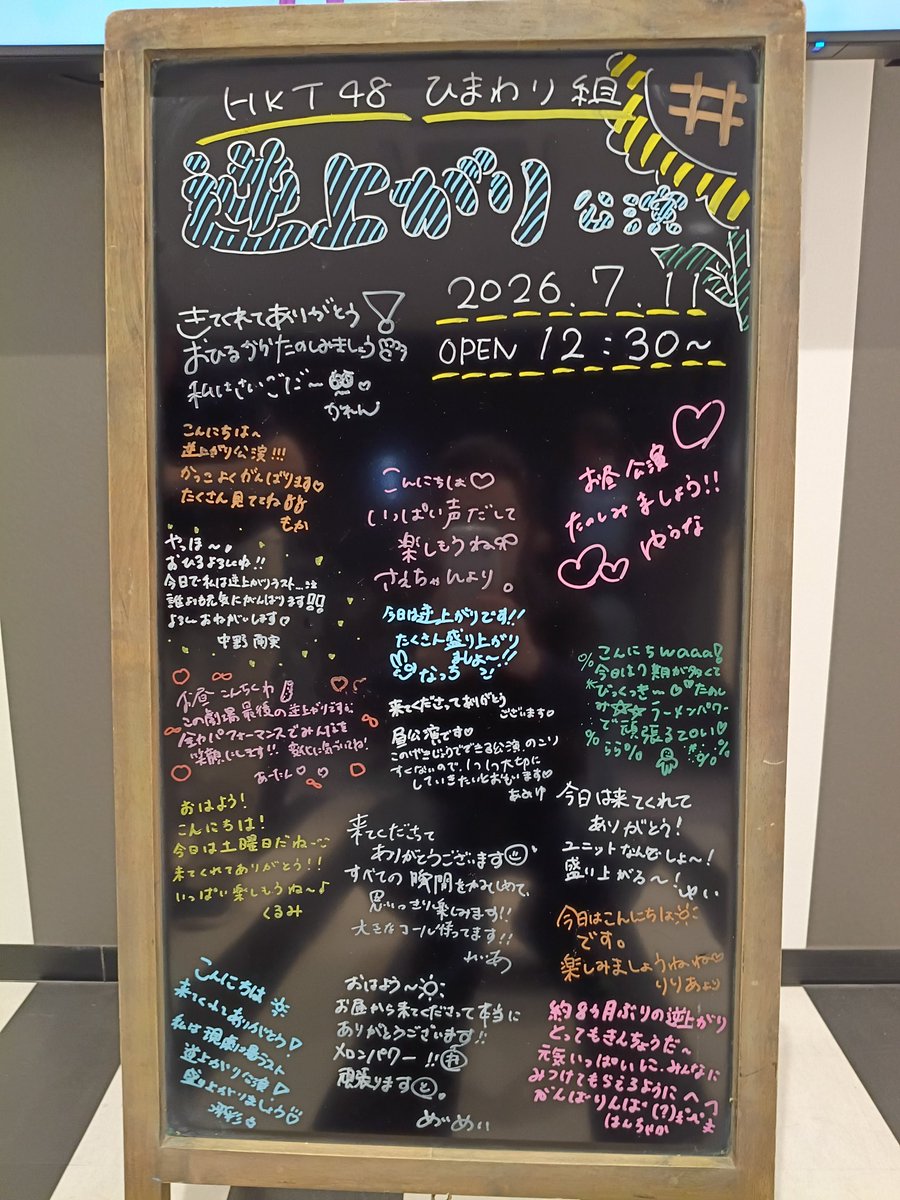 HKT48 ひまわり組
逆上がり 公演
2026.7.11
OPEN 12:30~
きてくれてありがとう!
おひるからたのしみましょう
私はさいごだ〜♡
かれん
こんにちは〜
逆上がり公演!!!
かっこよくがんばります♡
たくさん見ててね
もか
やっほ〜。
おひるよろしくね!!
今日で私は逆上がりラスト...
誰よりも元気にがんばります!!
よろしくおねがいします♡
中野 雨実
お昼 こんちくわ
この劇場最後の逆上がりです
全力パフォーマンスでみんなを
笑顔にします!!
あーたん♡
おはよう!
こんにちは!
今日は土曜日だねー
来てくれてありがとう!!
いっぱい楽しもうね〜♪
くるみ
こんにちは
来てくれてありがとう!
私は現劇場ラスト
逆上がり公演!
盛り上がりましょう
こんにちは♡
いっぱい声だして
楽しもうね
さえちゃんより。
今日は逆上がりです!!
たくさん盛り上がり
ましょ〜!!
なっち
来てくださってありがとう
ございます♡
昼公演です♡
このげきじょうでできる公演、のこり
すくないので、1つ1つ大切に
していきたいとおもいます♡
あめゆ
来てくださって
ありがとうございます
すべての瞬間をかみしめて、
思いっきり楽しみます!!
大きなコール待ってます!!
れいあ
おはよう〜
お昼から来てくださって本当に
ありがとうございます!!
メロンパワー!!
頑張ります
めいめい
お昼公演♡
たのしみましょう!!
ゆうな
こんにちwaaa!
今日は7期が多くて
びっくりー♡ たのし
み☆☆ ラーメンパワー
で頑張るてOい♡
らら
今日は来てくれて
ありがとう!
ユニットなんでしょ〜!
盛り上がる〜!
ゆい
今日はこんにちは
です。
楽しみましょうねね♡
りりあより
約8ヶ月ぶりの逆上がり
とってもきんちょうだ〜
元気いっぱいに、みんなに
みつけてもらえるように
がんばりんば(?)
はんちゃか